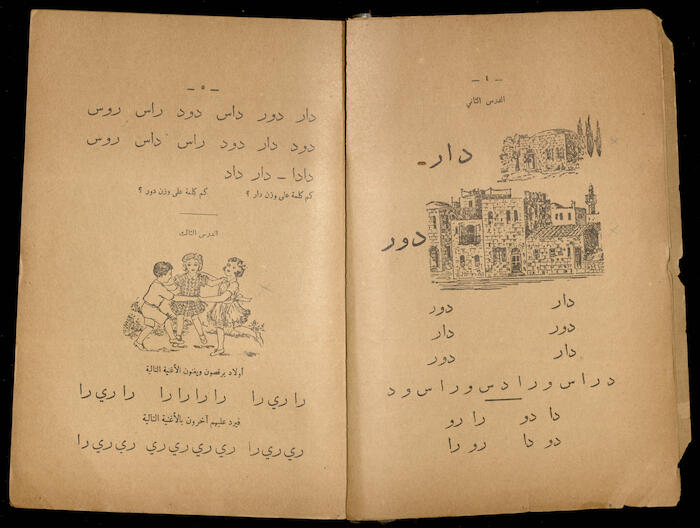 – ٤ –
الدرس الثاني
دار –
دور
دار دور
دور دار
دار دور
د ر ا س و ر ا د س و ر ا س و د
دا دو را رو
دو دا رو را
– ٥ –
دار دور داس دود راس روس
دود دار دود راس داس روس
دادا – دار داد
كم كلمة على وزن دار ؟ كم كلمة على وزن دور ؟
الدرس الثالث
أولاد يرقصون ويغنون الأغنية التالية
را ري را را را را را را ري را
فيرد عليهم آخرون بالأغنية التالية
ري ري را ري ري ري ري ري ري را